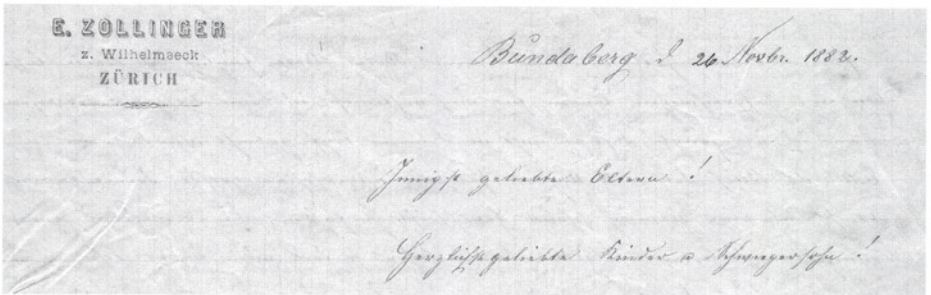 E. ZOLLINGER
z. Wilhelmseck
ZÜRICH
Bundaberg d 26 Novbr. 1882.
Innigst geliebte Eltern !
Herzlichst geliebte Kinder u Schwiegersohn !